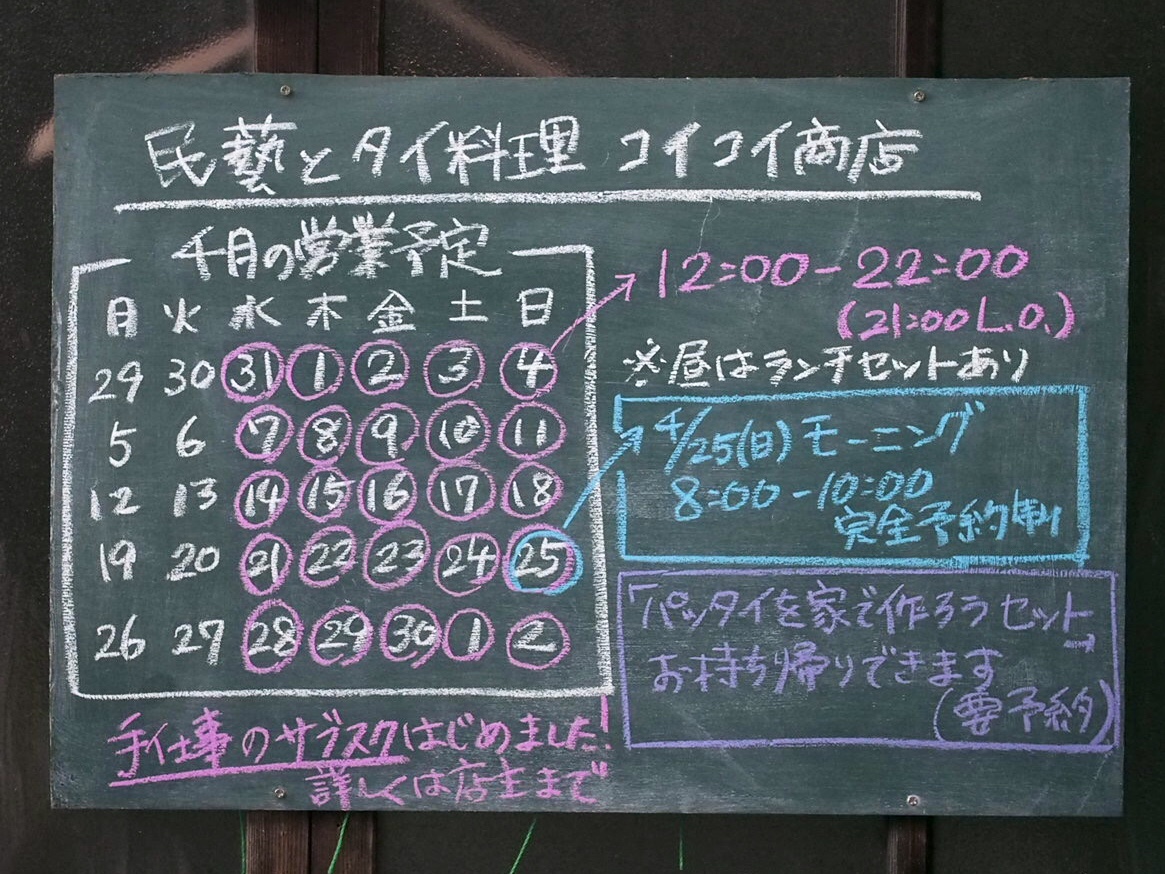 民藝とタイ料理 コイコイ商店
4月の営業予定
月 火 水 木 金 土 日
29 30 31 1 2 3 4
5 6 7 8 9 10 11
12 13 14 15 16 17 18
19 20 21 22 23 24 25
26 27 28 29 30 1 2
手仕事のサブスクはじめました!
詳しくは店主まで
12:00-22:00
(21:00 L.O.)
※昼はランチセットあり
4/25(日)モーニング
8:00-10:00
完全予約制
「パッタイを家で作ろうセット」
お持ち帰りできます
(要予約)